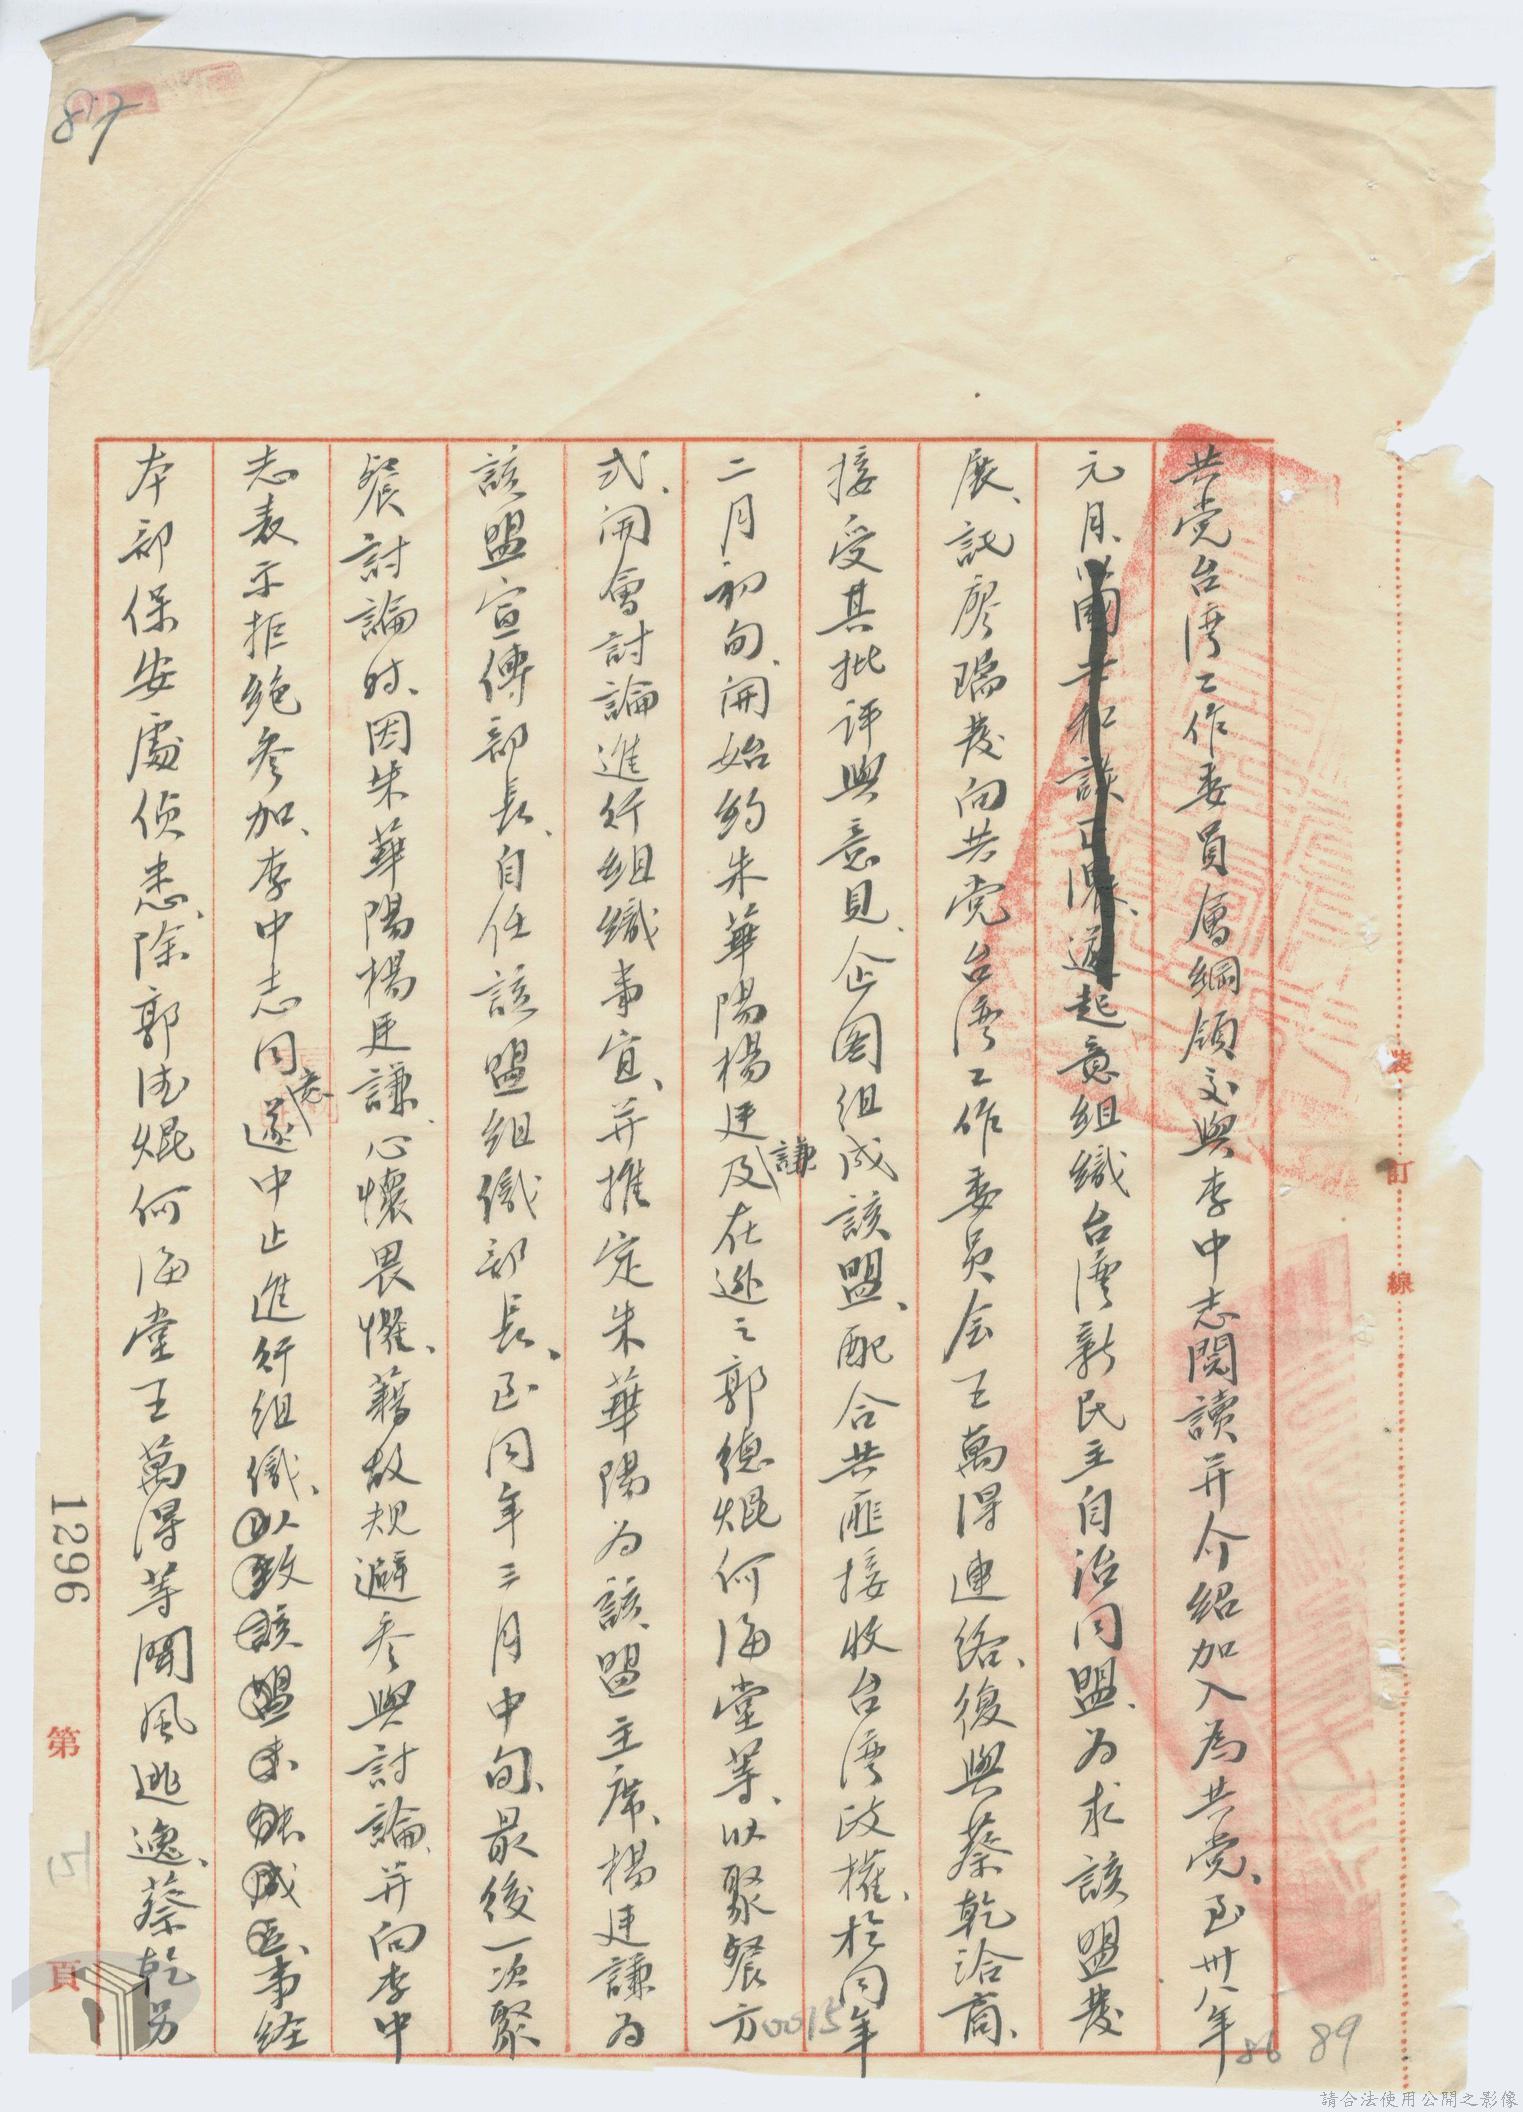 共党台湾工作委員會綱領交與李中志閱讀并介紹加入為共党、至卅八年
元月、國共和談正濃、遂起意組織台灣新民主自治同盟、为求該盟發
展、託廖瑞發向共党台湾工作委员会王萬得連絡、復與蔡乾洽商、
接受其批評與意見、企图组成該盟、配合共匪接收台湾政權、於同年
二月初旬、開始約朱華陽楊廷謙及在逃之郭德焜何海堂等、以聚餐方
式、開會討論進行組織事宜、并推定朱華陽为該盟主席、楊廷謙为
該盟宣傳部長、自任該盟組織部長、至同年三月中旬、最後一次聚
餐討論时、因朱華陽楊廷謙、心懷畏懼、藉故規避參與討論、并向李中
志表示拒絶參加、李中志同志遂中止進行组織、以致該盟未能成立、事经
本部保安處侦悉、除郭德焜何海堂王萬得等聞風逃逸、蔡乾另
裝
訂
線
87
89
86
0015
1296
第
頁
請合法使用公開之影像